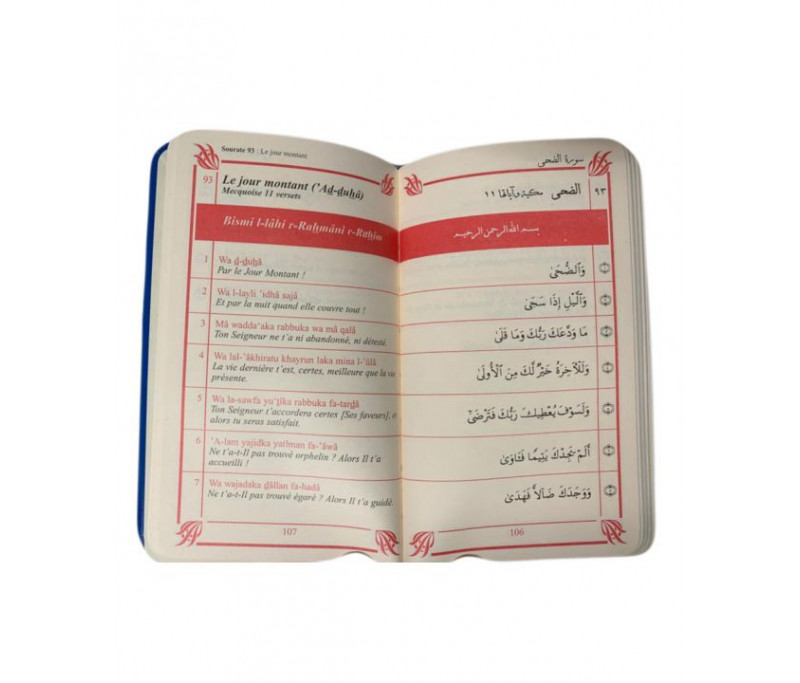 Sourate 93 : Le jour montant
93 Le jour montant ('Aḍ-ḍuḥâ)
Mecquoise 11 versets
Bismi l-lâhi r-Raḥmâni r-Raḥîm
1 Wa ḍ-ḍuḥâ
Par le Jour Montant !
2 Wa l-layli 'idhâ sajâ
Et par la nuit quand elle couvre tout !
3 Mâ wadda'aka rabbuka wa mâ qalâ
Ton Seigneur ne t'a ni abandonné, ni détesté.
4 Wa lal-'âkhiratu khayrun laka mina l-'ûlâ
La vie dernière t'est, certes, meilleure que la vie
présente.
5 Wa la-sawfa yu'ṭîka rabbuka fa-tarḍâ
Ton Seigneur t'accordera certes [Ses faveurs], et
alors tu seras satisfait.
6 'A-lam yajidka yatîman fa-'âwâ
Ne t'a-t-Il pas trouvé orphelin ? Alors Il t'a
accueilli !
7 Wa wajadaka ḍâllan fa-hadâ
Ne t'a-t-Il pas trouvé égaré ? Alors Il t'a guidé.
107
سورة الضحى
٩٣ الضحى مكية وآياتها ١١
بسم الله الرحمن الرحيم
وَٱلضُّحَىٰ
وَٱلَّيْلِ إِذَا سَجَىٰ
مَا وَدَّعَكَ رَبُّكَ وَمَا قَلَىٰ
وَلَلْآخِرَةُ خَيْرٌ لَّكَ مِنَ ٱلْأُولَىٰ
وَلَسَوْفَ يُعْطِيكَ رَبُّكَ فَتَرْضَىٰ
أَلَمْ يَجِدْكَ يَتِيمًا فَـَٔاوَىٰ
وَوَجَدَكَ ضَآلًّا فَهَدَىٰ
106